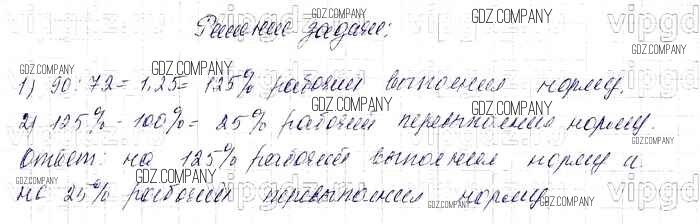 Решение задачи:
1) 90:72=1,25=125% рабочий выполнил норму.
2) 125%-100%=25% рабочий перевыполнил норму.
Ответ: на 125% рабочий выполнил норму и
на 25% рабочий перевыполнил норму.
GDZ.COMPANY
GDZ.COMPANY
GDZ.COMPANY
GDZ.COMPANY
GDZ.COMPANY
GDZ.COMPANY
GDZ.COMPANY
GDZ.COMPANY
GDZ.COMPANY
GDZ.COMPANY
GDZ.COMPANY